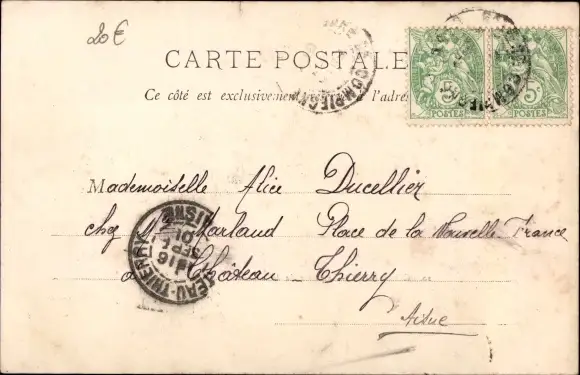 20 €
CARTE POSTALE
Ce côté est exclusivement l'adres
COMPIEGNE
5c 5c
POSTES POSTES
Mademoiselle Alice Ducellier
chez Mr Marland Place de la Nouvelle France
à Château-Thierry
Aisne
CHATEAU-THIERRY AISNE
16
SEPT
01